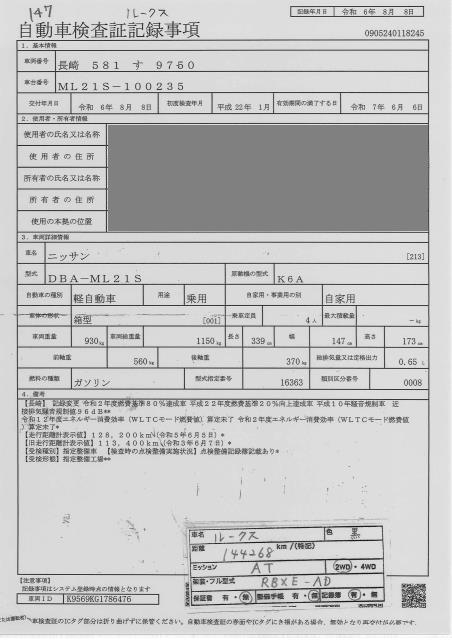 147 ルークス
記録年月日 令和 6年 8月 8日
自動車検査証記録事項
0905240118245
1. 基本情報
車両番号 長崎 581 す 9750
車台番号 ML21S-100235
交付年月日 令和 6年 8月 8日 初度検査年月 平成22年 1月 有効期間の満了する日 令和 7年 6月 6日
2. 使用者・所有者情報
使用者の氏名又は名称
使用者の住所
所有者の氏名又は名称
所有者の住所
使用の本拠の位置
3. 車両詳細情報
車名 ニッサン [213]
型式 DBA-ML21S 原動機の型式 K6A
自動車の種別 軽自動車 用途 乗用 自家用・事業用の別 自家用
車体の形状 箱型 [001] 乗車定員 4人 最大積載量 -kg
車両重量 930kg 車両総重量 1150kg 長さ 339cm 幅 147cm 高さ 173cm
前軸重 560kg 後軸重 370kg 総排気量又は定格出力 0.65L
燃料の種類 ガソリン 型式指定番号 16363 類別区分番号 0008
4. 備考
【長崎】 記録変更 令和2年度燃費基準80%達成車 平成22年度燃費基準20%向上達成車 平成10年騒音規制車 近
接排気騒音規制値96dB**
令和12年度エネルギー消費効率(WLTCモード燃費値)算定未了 令和2年度エネルギー消費効率(WLTCモード燃費値
)算定未了*
【走行距離計表示値】128,200km(令和5年6月5日)*
【旧走行距離計表示値】113,400km(令和3年6月7日)*
【受検種別】指定整備車 【検査時の点検整備実施状況】点検整備記録簿記載あり*
【受検形態】指定整備工場**
車名 ルークス 色 黒
距離 144268 km/(特記)
ミッション AT 2WD・4WD
架装・フル型式 RBXE-AD
保証書 有・無 整備手帳 有・無 記録簿 有・無
【注意事項】
記録事項はシステム登録時点の情報となります
車両ID K9569KG1786476
車検査証のICタグ部分は折り曲げずに保管ください。自動車検査証の券面やICタグに各損がある場合、無効となり再交付が必要です。